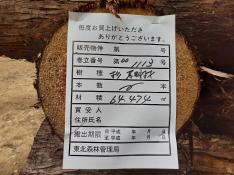 毎度お買上げいただき
ありがとうございます。
販売物件 第 号
巻立番号 第 1113 号
樹種 杉
本数
材積 64.474 m³
買受人
住所氏名
搬出期限 自 平成 年 月 日
至 平成 年 月 日
東北森林管理局